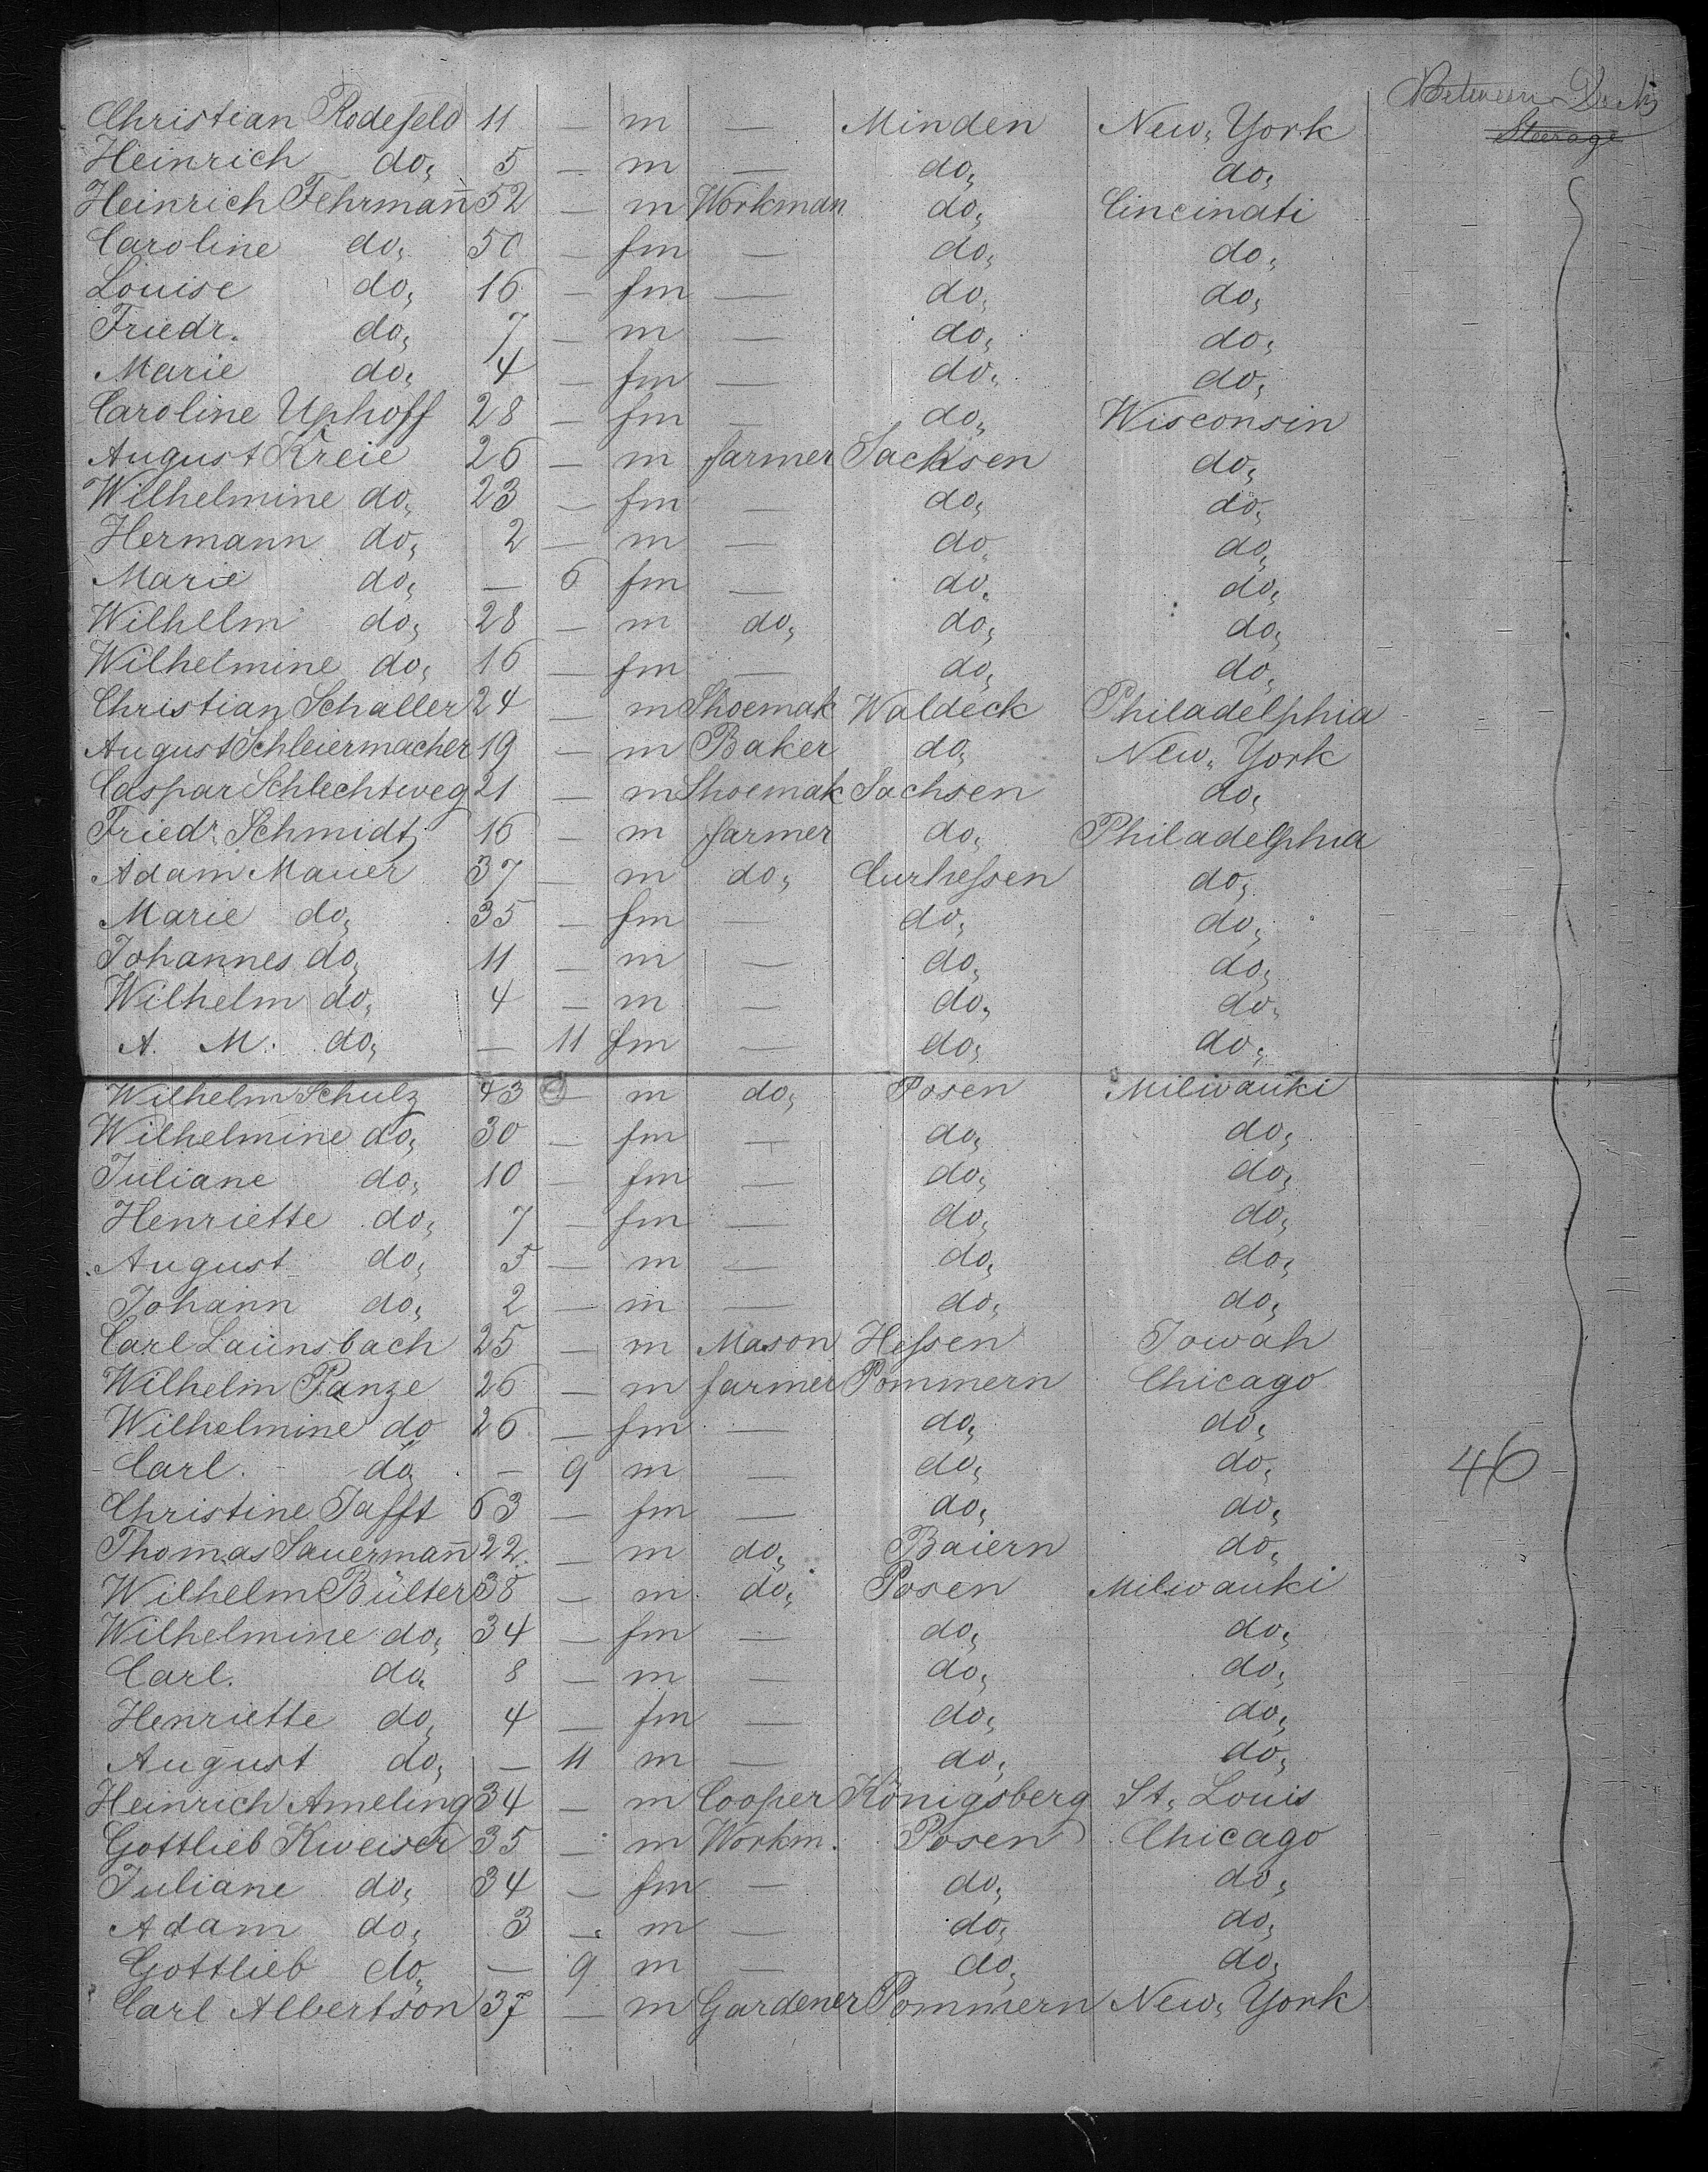 Between Decks
Steerage
Christian Rodefeld 11 — m — Minden New-York
Heinrich do, 5 — m — do, do,
Heinrich Fehrmañ 52 — m Workman do, Cincinati
Caroline do, 50 — fm — do, do,
Louise do, 16 — fm — do, do,
Friedr. do, 7 — m — do, do,
Marie do, 4 — fm — do, do,
Caroline Uphoff 28 — fm — do, Wisconsin
August Kreie 26 — m farmer Sachsen do,
Wilhelmine do, 23 — fm — do, do,
Hermann do, 2 — m — do, do,
Marie do, — 6 fm — do, do,
Wilhelm do, 28 — m do, do, do,
Wilhelmine do, 16 — fm — do, do,
Christian Schaller 24 — m Shoemak Waldeck Philadelphia
August Schleiermacher 19 — m Baker do, New-York
Caspar Schlechtweg 21 — m Shoemak Sachsen do,
Friedr. Schmidt 16 — m farmer do, Philadelphia
Adam Mauer 37 — m do, Curhessen do,
Marie do, 35 — fm — do, do,
Johannes do, 11 — m — do, do,
Wilhelm do, 4 — m — do, do,
A. M. do, — 11 fm — do, do,
Wilhelm Schulz 43 — m do, Posen Milwauki
Wilhelmine do, 30 — fm — do, do,
Juliane do, 10 — fm — do, do,
Henriette do, 7 — fm — do, do,
August do, 5 — m — do, do,
Johann do, 2 — m — do, do,
Carl Launsbach 25 — m Mason Hessen Iowah
Wilhelm Panze 26 — m farmer Pommern Chicago
Wilhelmine do 26 — fm — do, do,
Carl. do, — 9 m — do, do, 46
Christine Tafft 63 — fm — do, do,
Thomas Sauermañ 22 — m do, Baiern do,
Wilhelm Bülter 38 — m do, Posen Milwauki
Wilhelmine do, 34 — fm — do, do,
Carl. do, 8 — m — do, do,
Henriette do, 4 — fm — do, do,
August do, — 11 m — do, do,
Heinrich Ameling 34 — m Cooper Königsberg St. Louis
Gottlieb Kweiser 35 — m Workm. Posen Chicago
Juliane do, 34 — fm — do, do,
Adam do, 3 — m — do, do,
Gottlieb do, — 9 m — do, do,
Carl Albertson 37 — m Gardener Pommern New-York